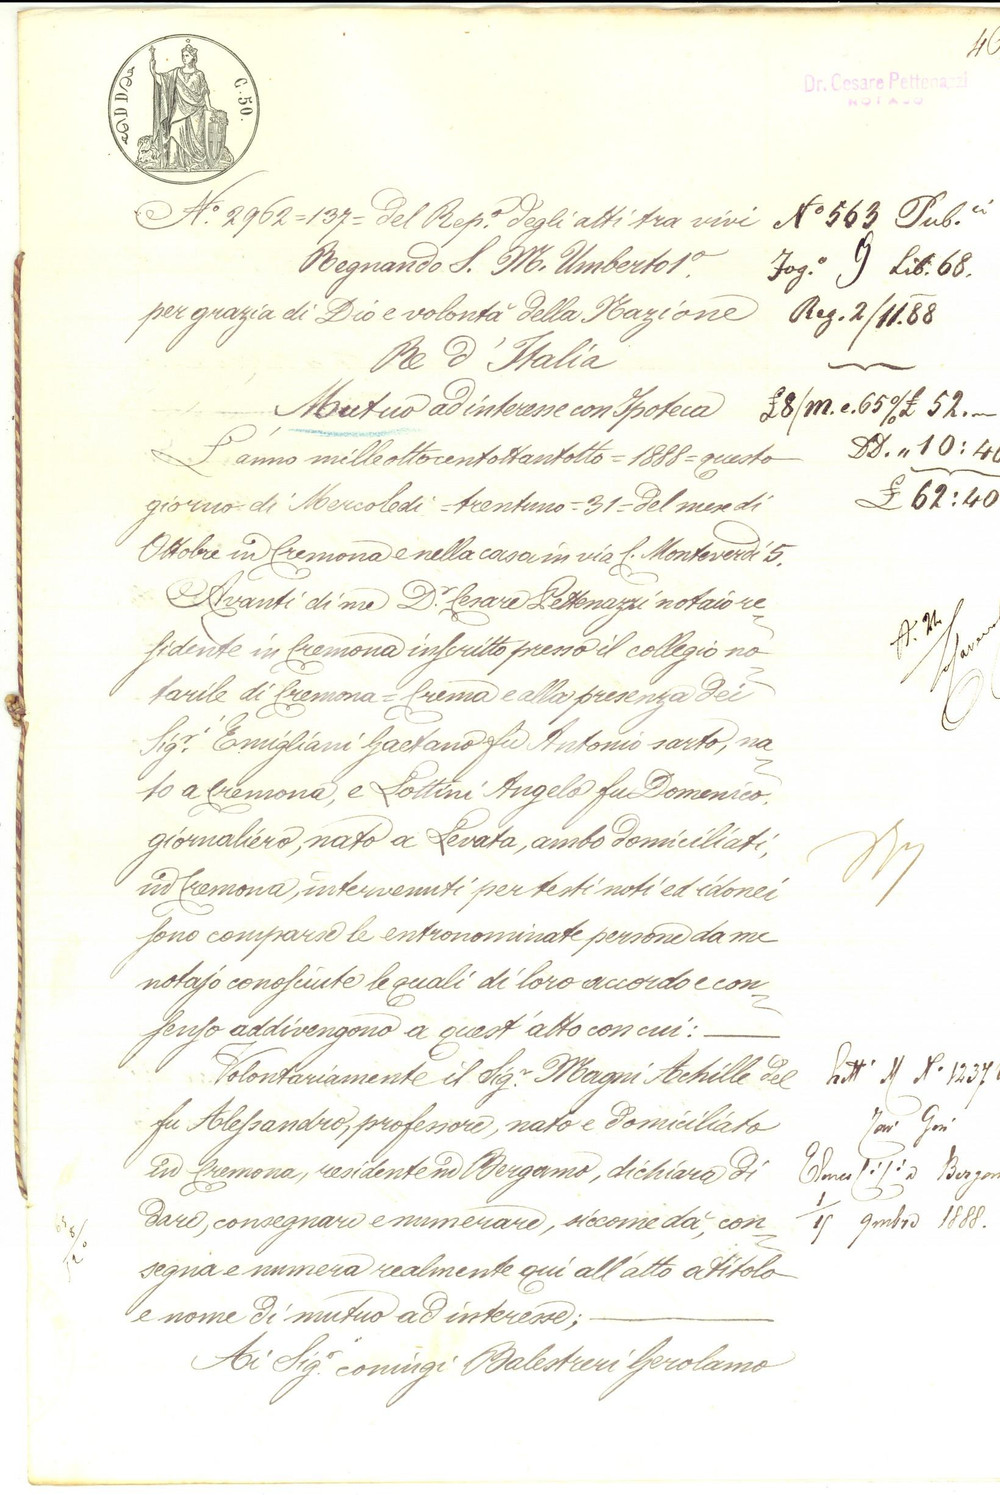 C. 50.
Dr. Cesare Pettenazzi
NOTAJO
N.º 2962=137= del Rep.º degli atti tra vivi
Regnando S. M. Umberto 1º.
per grazia di Dio e volontà della Nazione
Re d'Italia
Mutuo ad interesse con Ipoteca
L'anno milleottocentottantotto = 1888 = questo
giorno di Mercoledì = trentuno = 31 = del mese di
Ottobre in Cremona e nella casa in via C. Monteverdi 5.
Avanti di me D.r Cesare Pettenazzi notaio re=
sidente in Cremona inscritto presso il collegio no=
tarile di Cremona = Crema e alla presenza dei
Sig.ri Emigliani Gaetano fu Antonio sarto, na=
to a Cremona, e Lottini Angelo fu Domenico,
giornaliero, nato a Levata, ambo domiciliati,
in Cremona, intervenuti per testi noti ed idonei
sono comparse le entronominate persone da me
notajo conosciute le quali di loro accordo e con=
senso addivengono a quest'atto con cui:
Volontariamente il Sig.r Magni Achille del
fu Alessandro, professore, nato e domiciliato
in Cremona, residente in Bergamo, dichiara di
dare, consegnare e numerare, siccome dà, con=
segna e numera realmente qui all'atto a titolo
e nome di mutuo ad interesse;
Ai Sig.ri coniugi Balestreri Gerolamo
Nº 563 Pub.ci
Fog.º 9 Lib. 68.
Reg. 2/11.88
£8/m.e.65% £ 52.—
DD. " 10:40
£ 62:40
Nº 1237
1888.